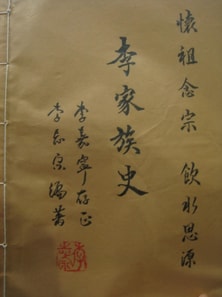 懷祖念宗 飲水思源
李家族史
李嘉寧存正
李志宗編著